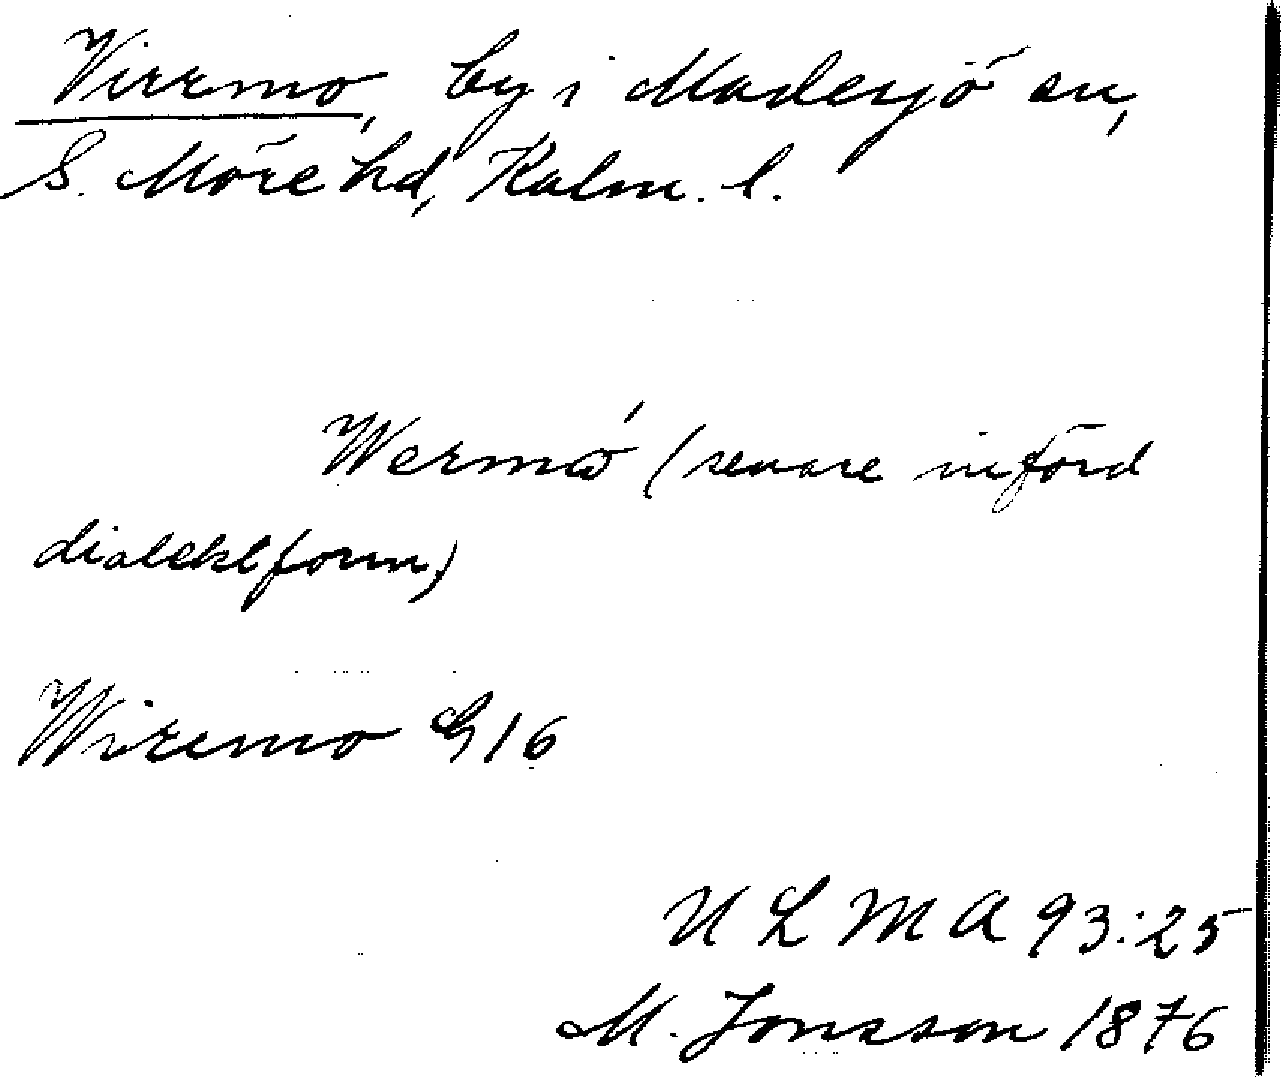 Virrmo, by i Madesjö sn,
S. Möre hd, Kalm. l.
Wermó (senare införd
dialektform)
Wiremo G16
ULMA 93:25
M. Jonsson 1876